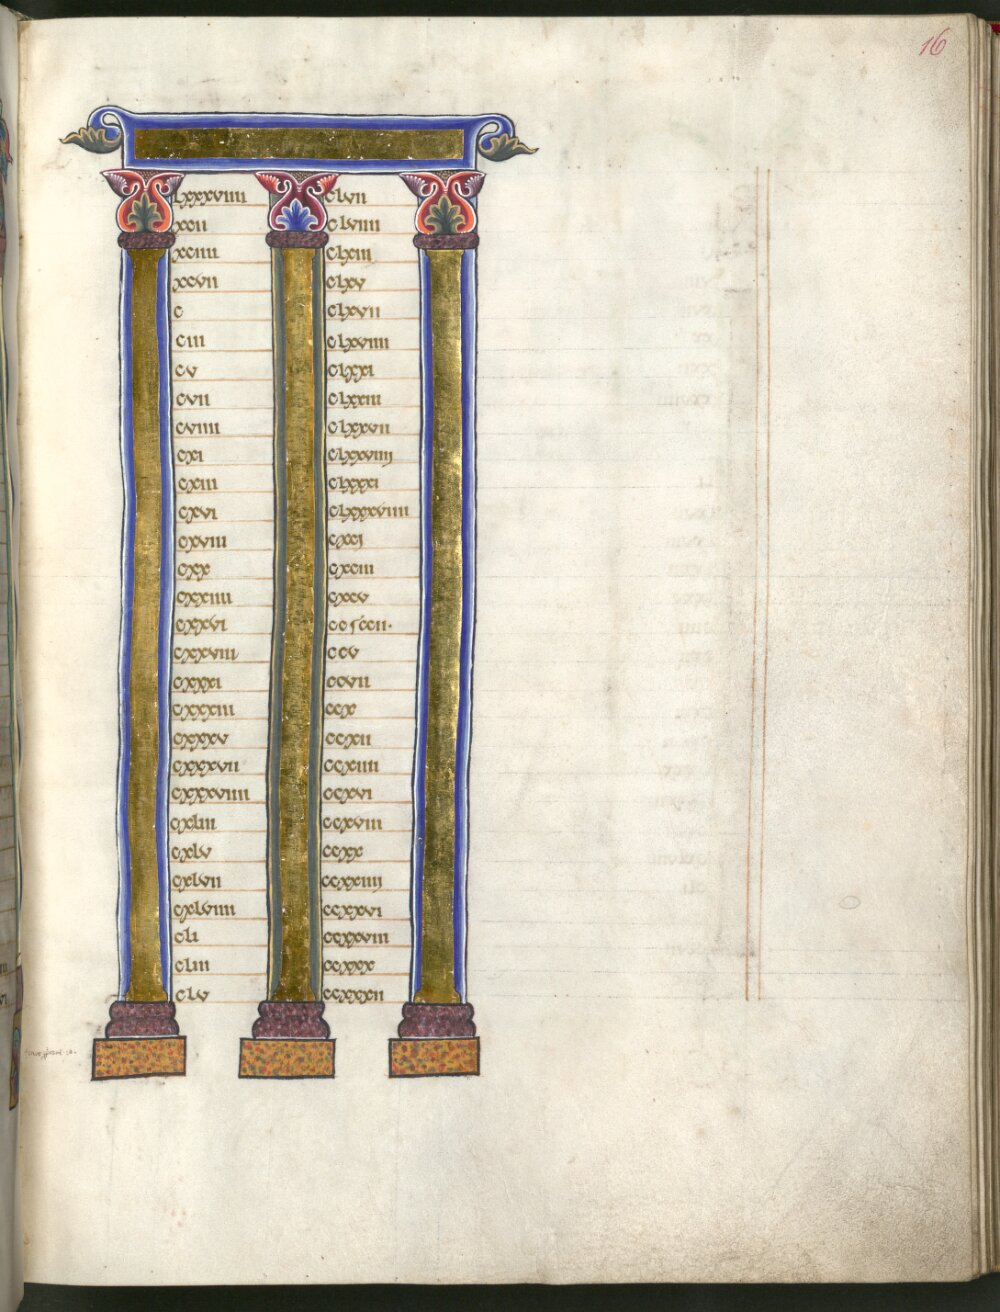 16
lxxxviiii
xcii
xciiii
xcvii
c
ciii
cv
cvii
cviiii
cxi
cxiii
cxvi
cxviii
cxx
cxxiiii
cxxvi
cxxviii
cxxxi
cxxxiii
cxxxv
cxxxvii
cxxxviiii
cxliii
cxlv
cxlvii
cxlviiii
cli
cliii
clv
clvii
clviiii
clxiii
clxv
clxvii
clxviiii
clxxi
clxxiii
clxxvii
clxxviiij
clxxxi
clxxxviiii
cxcj
cxciii
cxcv
ccv
ccvii
ccx
ccxii
ccxiiii
ccxvi
ccxviii
ccxx
ccxxiiij
ccxxvi
ccxxviii
ccxxx
ccxxxii